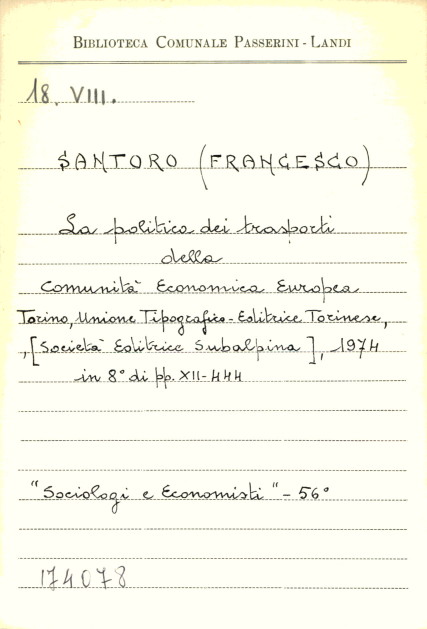 BIBLIOTECA COMUNALE PASSERINI - LANDI
18. VIII.
SANTORO (FRANCESCO)
La politica dei trasporti
della
Comunità Economica Europea
Torino, Unione Tipografico-Editrice Torinese,
,[Società Editrice Subalpina], 1974
in 8° di pp. XII-444
"Sociologi e Economisti" - 56°
174078